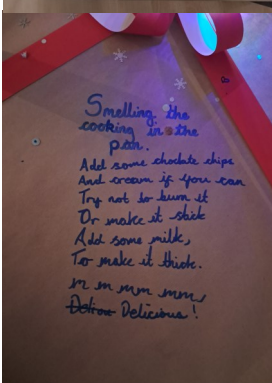 Smelling the
cooking in the
pan.
Add some choclate chips
And cream if you can
Try not to burn it
Or make it stick
Add some milk,
To make it thick.
m m mm mm,
Delicious!